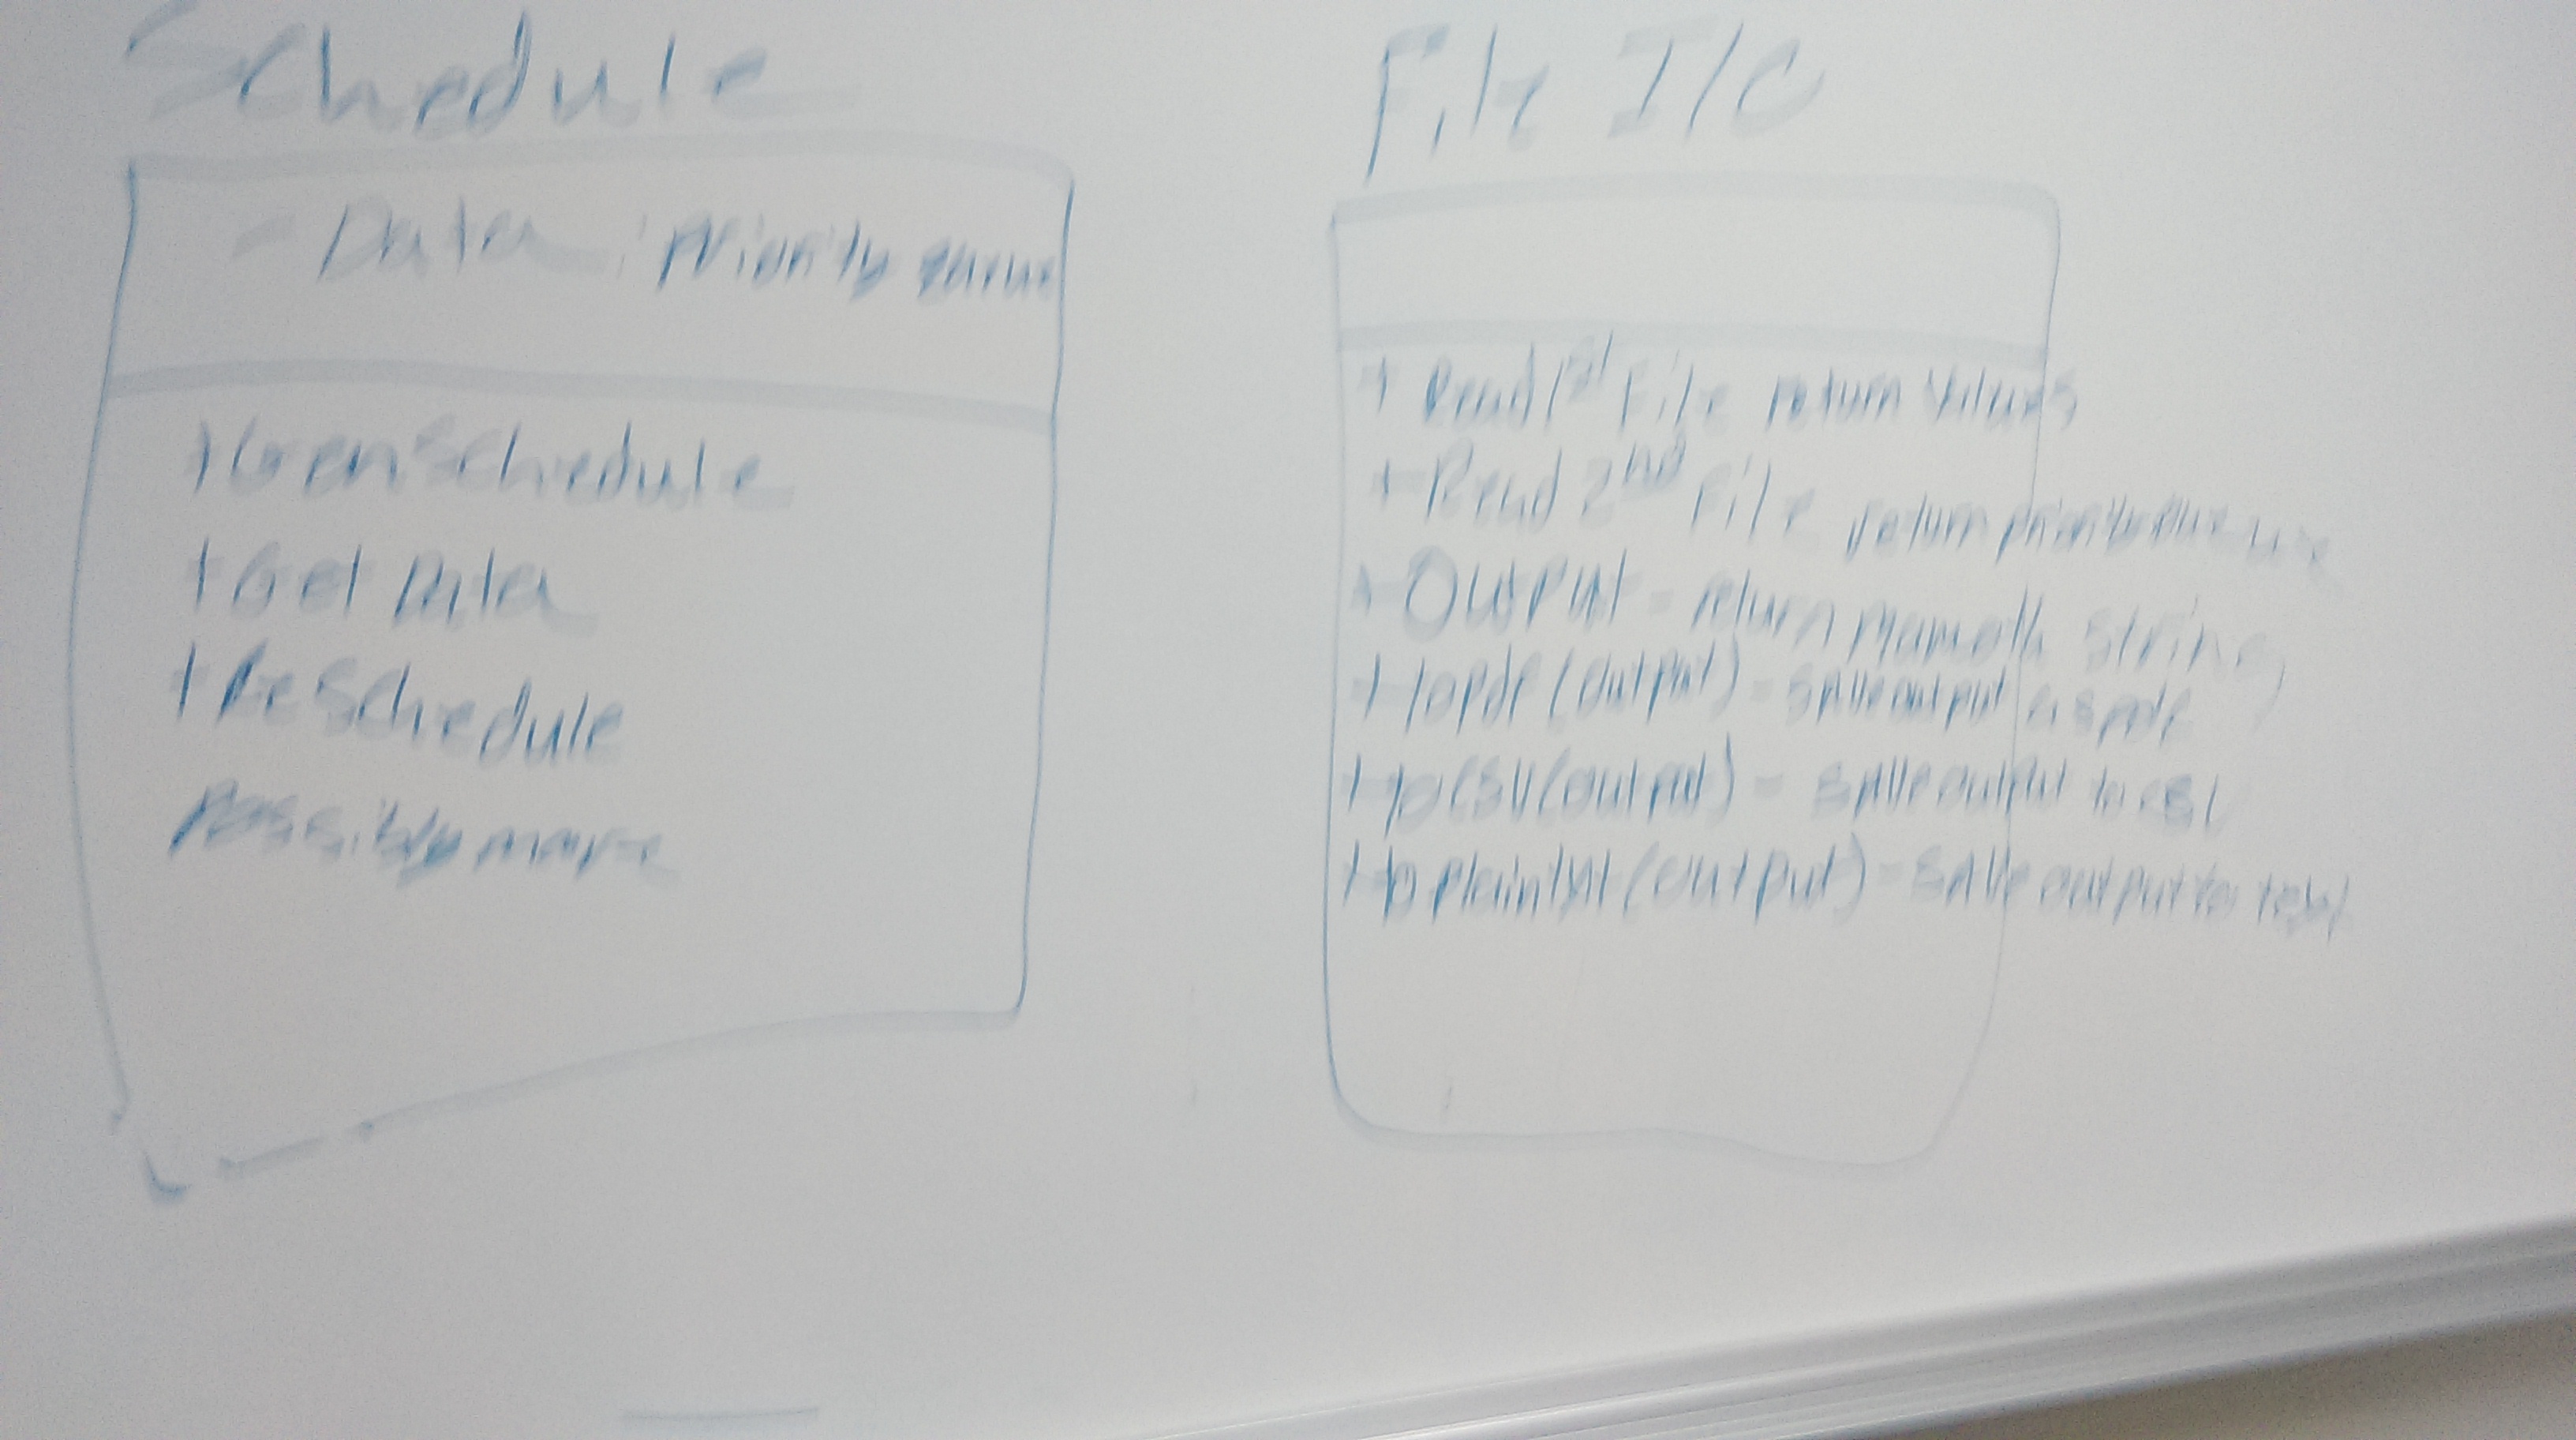 Schedule
- Data : Priority queue
+ GenSchedule
+ Get Data
+ ReSchedule
Possibly more
File I/O
+ Read 1st File return values
+ Read 2nd File return priority queue
+ Output - return Mamoth String
+ topdf (output) - save output as pdf
+ toCSV (output) - save output to csv
+ to plaintxt (output) - save output to text